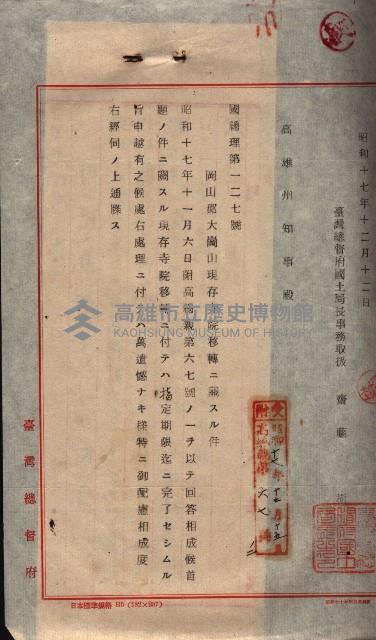 昭和十七年十二月十二日
臺灣總督府國土局長事務取扱 齋藤
高雄州知事殿
國總理第一二七號
岡山郡大崗山現存寺院移轉ニ關スル件
昭和十七年十一月六日附高梅親第六七號ノ一チ以テ回答相成候首
題ノ件ニ關スル現存寺院移轉ニ付テハ指定期限迄ニ完了セシムル
旨申越有之候處右處理ニ付テハ萬遺憾ナキ樣特ニ御配慮相成度
右經伺ノ上通牒ス
臺灣總督府
日本標準規格 B5 (182×257)
高雄市立歷史博物館
KAOHSIUNG MUSEUM OF HISTORY